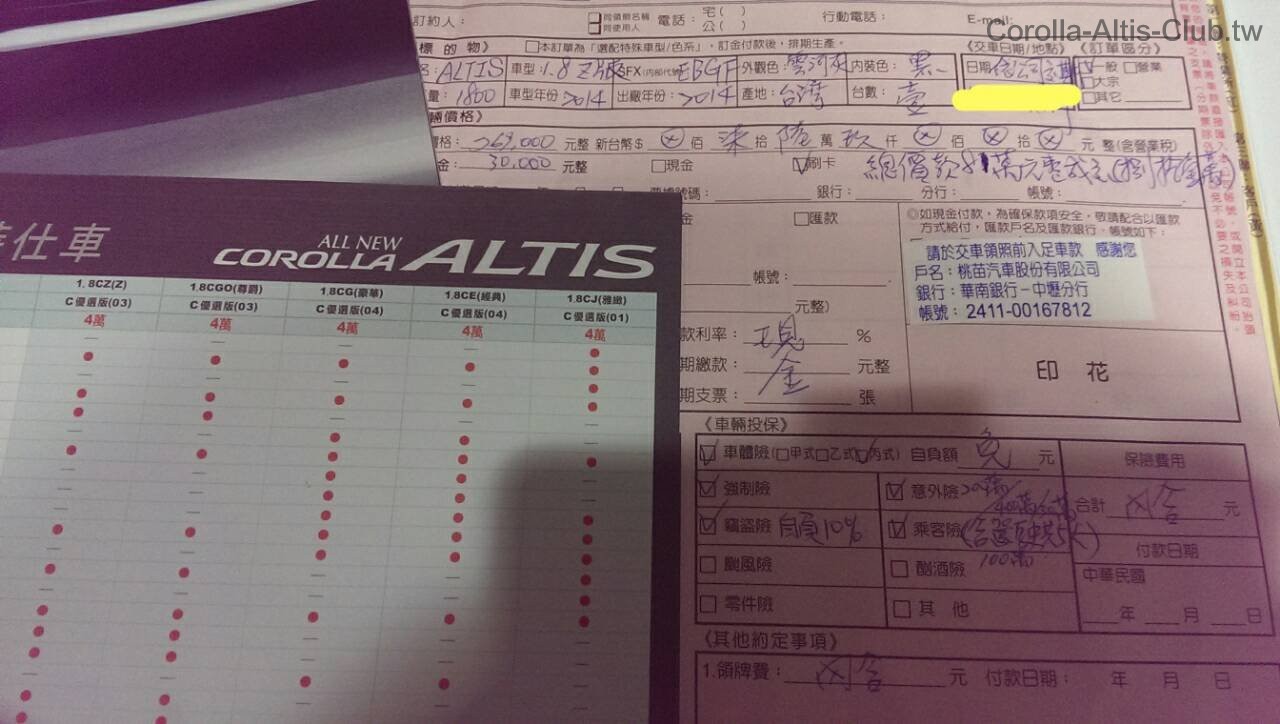 Corolla-Altis-Club.tw
訂約人：
電話：
宅( )
公( )
行動電話：
E-mail:
標的物》
□本訂單為「選配特殊車型/色系」，訂金付款後，排期生產。
《交車日期/地點》
《訂單區分》
ALTIS
車型：1.8 Z版
SFX(內部代號)EBGF
外觀色：雲河灰
內裝色：黑
日期
般 □營業
大宗
其它
量：1800
車型年份：2014
出廠年份：2014
產地：台灣
台數：壹
輛價格》
價格：769,000 元整 新台幣$ ⊗ 佰 柒 拾 陸 萬 玖 仟 ⊗ 佰 ⊗ 拾 ⊗ 元 整(含營業稅)
金：30,000 元整
□現金
刷卡
銀行：
分行：
帳號：
□匯款
◎如現金付款，為確保款項安全，敬請配合以匯款
方式給付，匯款戶名及匯款銀行、帳號如下：
請於交車領照前入足車款 感謝您
戶名：桃苗汽車股份有限公司
銀行：華南銀行－中壢分行
帳號：2411-00167812
帳號：
元整)
款利率：現 %
期繳款：金 元整
期支票： 張
印 花
仕車
ALL NEW
COROLLA ALTIS
1.8CZ(Z) 1.8CGO(尊爵) 1.8CG(豪華) 1.8CE(經典) 1.8CJ(雅緻)
C優選版(03) C優選版(03) C優選版(04) C優選版(04) C優選版(01)
4萬 4萬 4萬 4萬 4萬
《車輛投保》
車體險(□甲式□乙式☑丙式) 自負額 免 元
保險費用
☑強制險
☑意外險
合計 內含 元
☑竊盜險 自負10%
☑乘客險
100萬
付款日期
□颱風險
□酗酒險
中華民國
□零件險
□其 他
年 月 日
《其他約定事項》
1.領牌費：內含 元 付款日期： 年 月 日